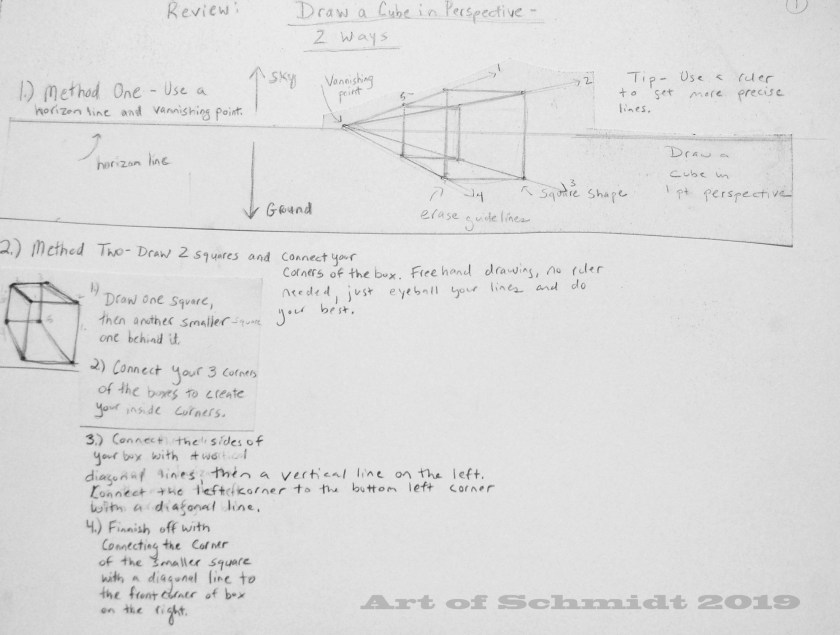 Review: Draw a Cube in Perspective -
2 Ways
1
1.) Method One - Use a
horizon line and vannishing point.
Sky
Vannishing
point
1
2
Tip - Use a ruler
to get more precise
lines.
horizon line
Ground
5
3
4
Square shape
erase guidelines
Draw a
Cube in
1 pt perspective
2.) Method Two - Draw 2 squares and connect your
corners of the box. Free hand drawing, no ruler
needed, just eyeball your lines and do
your best.
1) Draw one square,
then another smaller square
one behind it.
2) Connect your 3 corners
of the boxes to create
your inside corners.
3.) Connect the sides of
your box with two
diagonal lines, then a vertical line on the left.
Connect the left corner to the bottom left corner
with a diagonal line.
4.) Finnish off with
Connecting the Corner
of the smaller square
with a diagonal line to
the front corner of box
on the right.
Art of Schmidt 2019